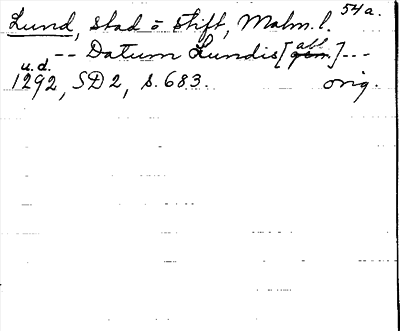 Lund, stad o stift, Malm. l. 54a.
-- Datum Lundis [abl ~~gen~~] ---
u.d.
1292, SD 2, s. 683. orig.